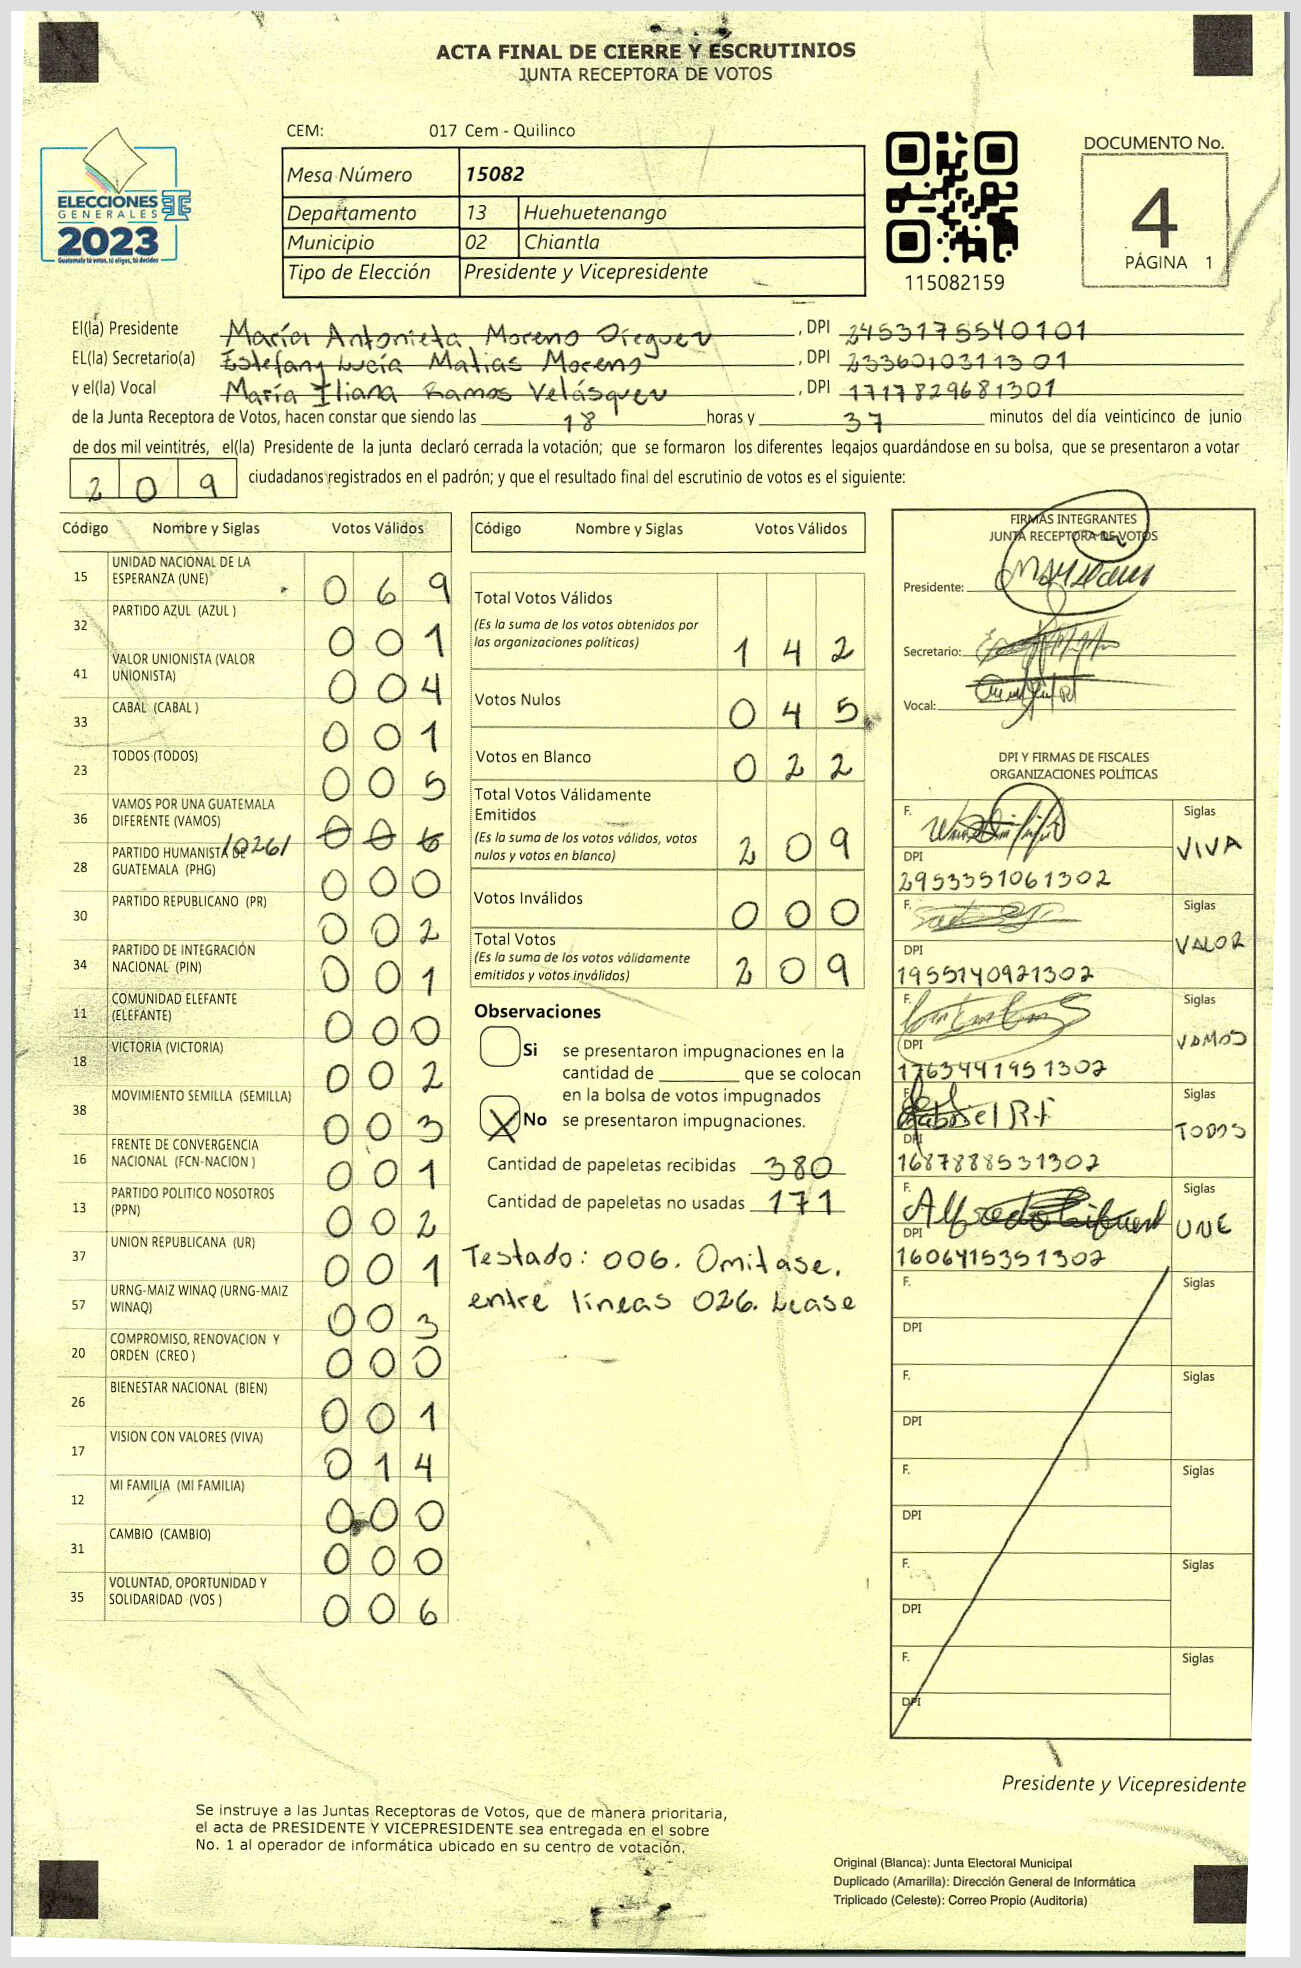 ACTA FINAL DE CIERRE Y ESCRUTINIOS
JUNTA RECEPTORA DE VOTOS
CEM: 017 Cem - Quilinco
ELECCIONES
GENERALES
2023
Guatemala tú votas, tú eliges, tú decides
Mesa Número 15082
Departamento 13 Huehuetenango
Municipio 02 Chiantla
Tipo de Elección Presidente y Vicepresidente
115082159
DOCUMENTO No.
4
PÁGINA 1
El(la) Presidente María Antonieta Moreno Dieguez, DPI 2453175540101
EL(la) Secretario(a) Estefany Lucía Matias Moreno, DPI 2336010311301
y el(la) Vocal María Iliana Ramos Velásquez, DPI 1717829681301
de la Junta Receptora de Votos, hacen constar que siendo las 18 horas y 37 minutos del día veinticinco de junio
de dos mil veintitrés, el(la) Presidente de la junta declaró cerrada la votación; que se formaron los diferentes legajos guardándose en su bolsa, que se presentaron a votar
209 ciudadanos registrados en el padrón; y que el resultado final del escrutinio de votos es el siguiente:
Código Nombre y Siglas Votos Válidos
15 UNIDAD NACIONAL DE LA
ESPERANZA (UNE) 0 6 9
32 PARTIDO AZUL (AZUL ) 0 0 1
41 VALOR UNIONISTA (VALOR
UNIONISTA) 0 0 4
33 CABAL (CABAL ) 0 0 1
23 TODOS (TODOS) 0 0 5
36 VAMOS POR UNA GUATEMALA
DIFERENTE (VAMOS) 0 0 6
/026/
28 PARTIDO HUMANISTA DE
GUATEMALA (PHG) 0 0 0
30 PARTIDO REPUBLICANO (PR) 0 0 2
34 PARTIDO DE INTEGRACIÓN
NACIONAL (PIN) 0 0 1
11 COMUNIDAD ELEFANTE
(ELEFANTE) 0 0 0
18 VICTORIA (VICTORIA) 0 0 2
38 MOVIMIENTO SEMILLA (SEMILLA) 0 0 3
16 FRENTE DE CONVERGENCIA
NACIONAL (FCN-NACION ) 0 0 1
13 PARTIDO POLITICO NOSOTROS
(PPN) 0 0 2
37 UNION REPUBLICANA (UR) 0 0 1
57 URNG-MAIZ WINAQ (URNG-MAIZ
WINAQ) 0 0 3
20 COMPROMISO, RENOVACION Y
ORDEN (CREO ) 0 0 0
26 BIENESTAR NACIONAL (BIEN) 0 0 1
17 VISION CON VALORES (VIVA) 0 1 4
12 MI FAMILIA (MI FAMILIA) 0 0 0
31 CAMBIO (CAMBIO) 0 0 0
35 VOLUNTAD, OPORTUNIDAD Y
SOLIDARIDAD (VOS ) 0 0 6
Código Nombre y Siglas Votos Válidos
Total Votos Válidos
(Es la suma de los votos obtenidos por
las organizaciones políticas) 1 4 2
Votos Nulos 0 4 5
Votos en Blanco 0 2 2
Total Votos Válidamente
Emitidos
(Es la suma de los votos válidos, votos
nulos y votos en blanco) 2 0 9
Votos Inválidos 0 0 0
Total Votos
(Es la suma de los votos válidamente
emitidos y votos inválidos) 2 0 9
Observaciones
Si se presentaron impugnaciones en la
cantidad de ________ que se colocan
en la bolsa de votos impugnados
X No se presentaron impugnaciones.
Cantidad de papeletas recibidas 380
Cantidad de papeletas no usadas 171
Testado: 006. Omitase.
entre líneas 026. Lease
FIRMAS INTEGRANTES
JUNTA RECEPTORA DE VOTOS
Presidente:
Secretario:
Vocal:
DPI Y FIRMAS DE FISCALES
ORGANIZACIONES POLÍTICAS
F. Siglas VIVA
DPI
2953351061302
F. Siglas VALOR
DPI
1955140921302
F. Siglas VAMOS
DPI
1763441951302
F. Gabriel R F Siglas TODOS
DPI
1687888531302
F. Alfredo Siglas UNE
DPI
1606415351302
F. Siglas
DPI
F. Siglas
DPI
F. Siglas
DPI
F. Siglas
DPI
F. Siglas
DPI
Presidente y Vicepresidente
Se instruye a las Juntas Receptoras de Votos, que de manera prioritaria,
el acta de PRESIDENTE Y VICEPRESIDENTE sea entregada en el sobre
No. 1 al operador de informática ubicado en su centro de votación.
Original (Blanca): Junta Electoral Municipal
Duplicado (Amarilla): Dirección General de Informática
Triplicado (Celeste): Correo Propio (Auditoria)